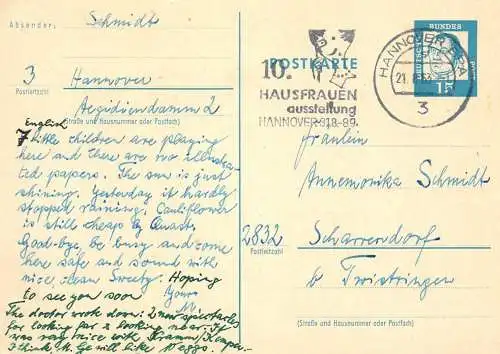 Absender:
Schmidt
3 Hannover
Postleitzahl
Aegidiendamm 2
(Straße und Hausnummer oder Postfach)
English
7 little children are playing
here and there are no
ted papers. The sun is just
shining. Yesterday it hardly
stopped raining. Cauliflower
is still cheap by Quast.
Good-bye, be busy and come
here safe and sound with
nice, clean Sweety. Hoping
to see you soon
Yours
M.
The doctor wrote down: 2 new spectacles
for looking far & looking near. It
was very nice with
I think, M. Ge will like
POSTKARTE
10.
HAUSFRAUEN
ausstellung
HANNOVER
HANNOVER
21.
3
DEUTSCHE
BUNDES
15
Fräulein
Annemonika Schmidt
2832 Scharrendorf
Postleitzahl
b Twistringen
(Straße und Hausnummer oder Postfach)